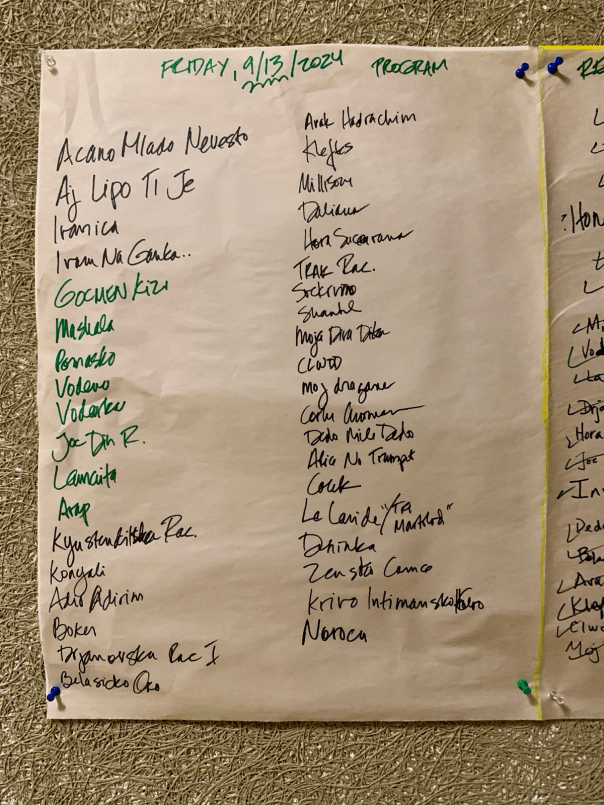 FRIDAY, 9/13/2024 PROGRAM
Acano Mlado Nevesto
Aj Lipo Ti Je
Iranica
Ivan Na Ganka..
GOCMEN Kizi
Mashala
Pomasko
Vodeno
Voderka
Joc Din R.
Lamaita
Arap
Kyustendilska Rac.
Konyali
Adir Adirim
Boker
Drjanovska Rac I
Belasicko Oro
Arak Hadrachim
Klefts
Millisou
Daliana
Hora Suceavana
TRAK Rac.
Sickrino
Shankl
Moja Diva Dika
CLWTD
moj dragane
Dedo Mili Dedo
Alice No Trumpt
Colek
La Laride "/Ta
Dominka
Zensta Camce
Krivo Intimansko Horo
Noroca
RE
Hon
Vod
La
Drj
Hora
Joc
Inv
Dedo
Ara
Klef
Clw
Moj